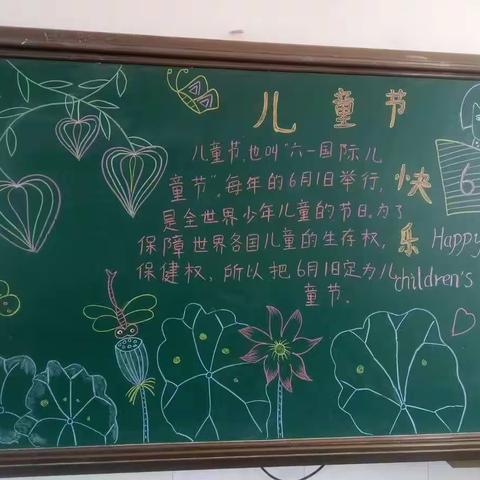 儿童节
儿童节,也叫“六一国际儿
童节”,每年的6月1日举行,
是全世界少年儿童的节日。为了
保障世界各国儿童的生存权,
保健权,所以把6月1日定为儿
童节.
快
乐
Happy
children's
6